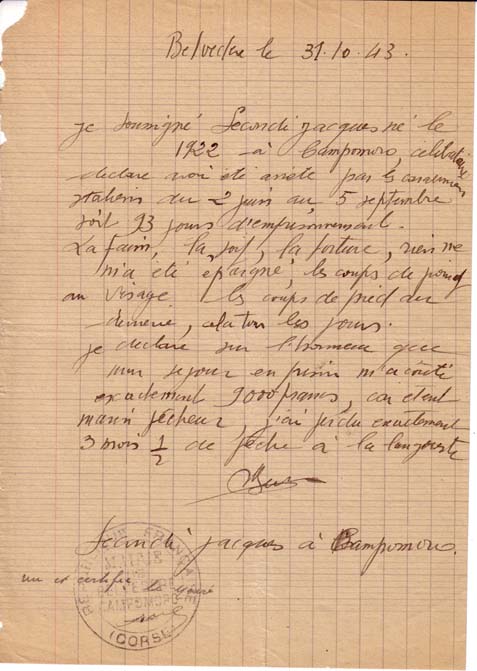 Belvedere le 31.10.43.
je soussigné Secondi jacques né le
1922 à Campomoro, celibataire
declare avoir été arreté par les
italiens du 2 juin au 5 septembre
soit 93 jours d'emprisonnement.
La faim, la soif, la torture, rien ne
m'a été épargné, les coups de poing
au visage les coups de pied au
derriere, cela tous les jours.
je declare sur l'honneur que
mon sejour en prison m'a couté
exactement 9000 francs, car étant
marin pêcheur, j'ai perdu exactement
3 mois 1/2 de pêche à la langouste
Secondi jacques à Campomoro.
vu et certifié le maire
REPUBLIQUE FRANÇAISE
MAIRIE
BELVEDERE
CAMPOMORO
(CORSE)